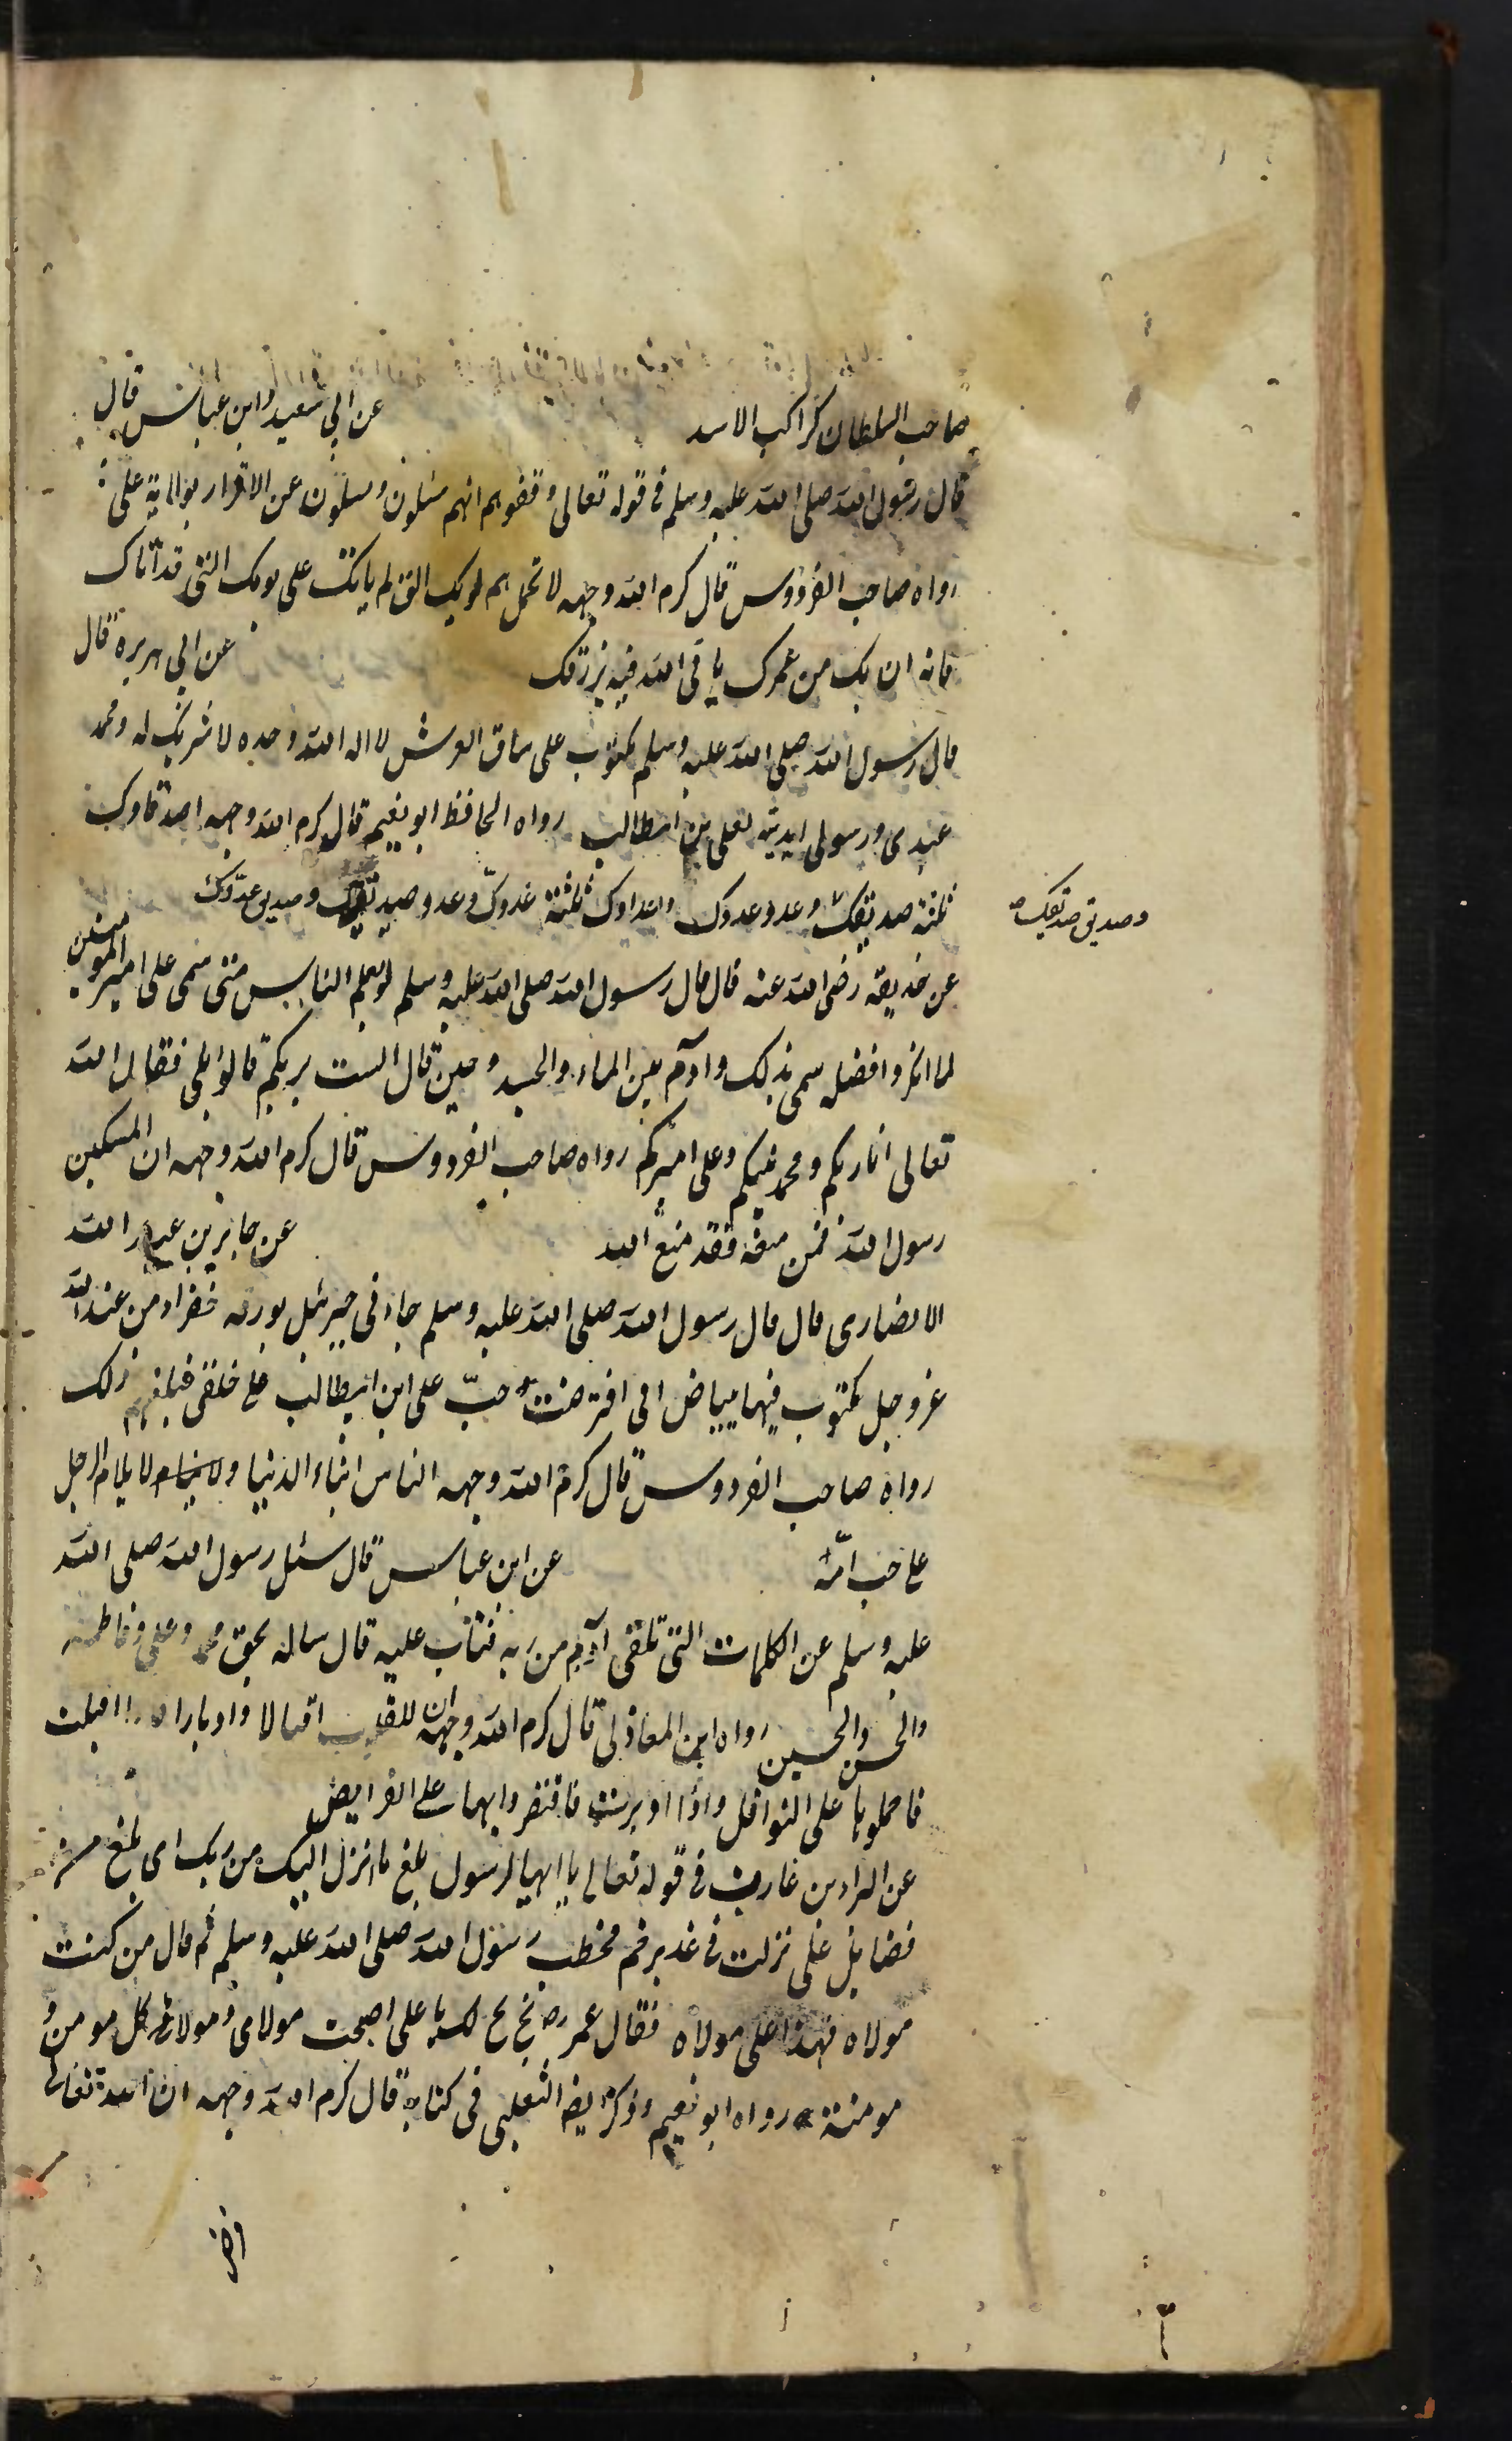 صاحب السلطان كراكب الاسد عن ابى سعيد وابن عباس قال
قال رسول الله صلى الله عليه وسلم فى قوله تعالى وقفوهم انهم مسئلون ومسئلون عن الاقرار بولاية على
رواه صاحب الفردوس قال كرم الله وجهه لا تحمل هم يومك التى لم ياتك على يومك التى قد آتاك
فانه ان يك من عمرك ياتى الله فيه برزقك عن ابى هريرة قال
قال رسول الله صلى الله عليه وسلم مكتوب على ساق العرش لا اله الا الله وحده لا شريك له ومحمد
عبدى ورسولى ايدته بعلى بن ابيطالب رواه الحافظ ابو نعيم قال كرم الله وجهه اصدقاوك
ثلثة صديقك وعدو عدوك واعداوك ثلثة عدوك وعدو صديقك وصديق عدوك
وصديق صديقك صح
عن حذيفة رضى الله عنه قال قال رسول الله صلى الله عليه وسلم لو يعلم الناس متى سمى على امير المومنين
لما انكروا فضله سمى بذلك وآدم بين الماء والجسد وحين قال الست بربكم قالوا بلى فقال الله
تعالى انا ربكم ومحمد نبيكم وعلى اميركم رواه صاحب الفردوس قال كرم الله وجهه ان المسكين
رسول الله فمن منعه فقد منع الله عن جابر بن عبد الله
الانصارى قال قال رسول الله صلى الله عليه وسلم جاءنى جبرئيل بورقه خضراء من عند الله
عز وجل مكتوب فيها ببياض انى افترضت حبّ على ابن ابيطالب على خلقى فبلغهم ذلك
رواه صاحب الفردوس قال كرم الله وجهه الناس ابناء الدنيا ولا يلام الرجل
على حب امّه عن ابن عباس قال سئل رسول الله صلى الله
عليه وسلم عن الكلمات التى تلقى آدم من ربه فتاب عليه قال ساله بحق محمد وعلى وفاطمة
والحسن والحسين رواه ابن المغازلى قال كرم الله وجهه ان للقلوب اقبالا وادبارا اقبلت
فاحملوها على النوافل واذا ادبرت فاقتصروا بها على الفرايض
عن البراء بن عازب فى قوله تعالى يا ايها الرسول بلغ ما انزل اليك من ربك اى بلغ من
فضايل على نزلت فى غدير خم فخطب رسول الله صلى الله عليه وسلم ثم قال من كنت
مولاه فهذا على مولاه فقال عمر رض بخ بخ لك يا على اصبحت مولاى ومولاى كل مومن و
مومنة رواه ابو نعيم وذكر ايضا الثعلبى فى كتابه قال كرم الله وجهه ان الله تعالى